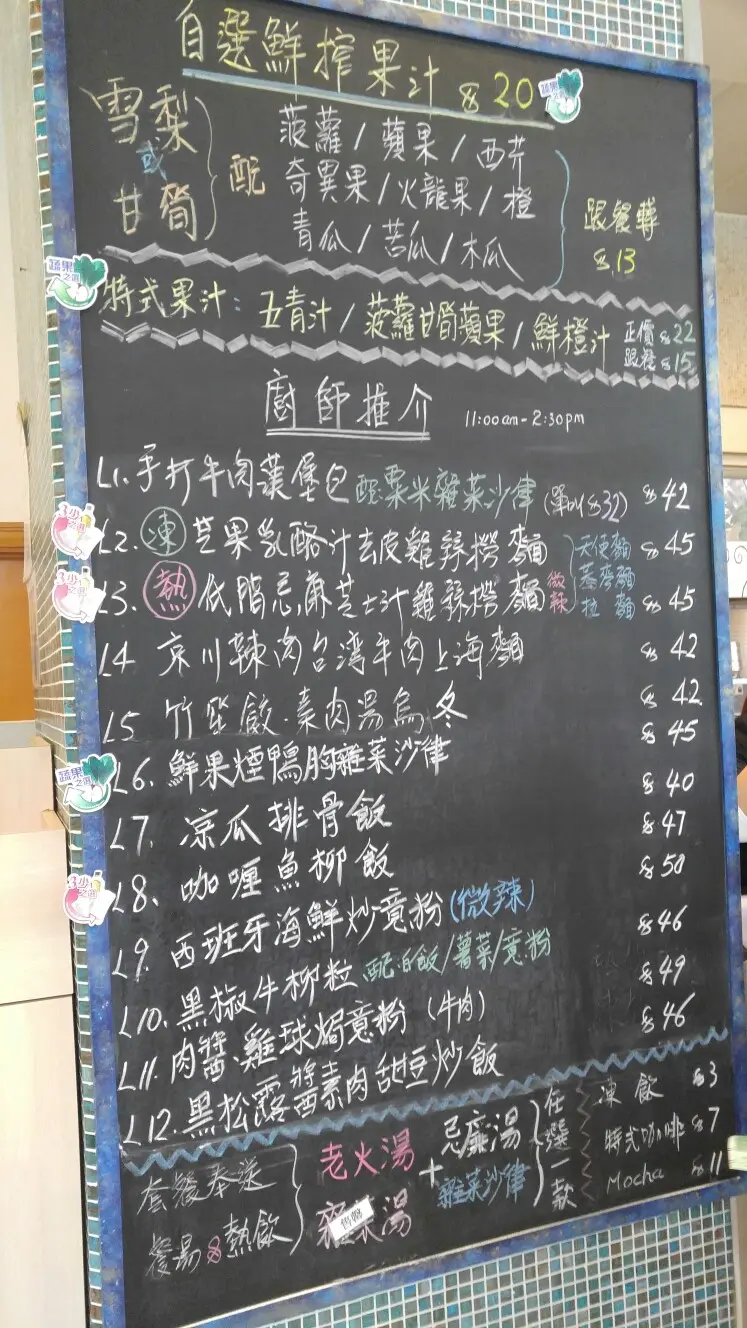 自選鮮搾果汁 $20
蔬果之選
雪梨
或
甘筍
配
菠蘿/蘋果/西芹
奇異果/火龍果/橙
青瓜/苦瓜/木瓜
跟餐轉
$13
蔬果之選
特式果汁: 五青汁/菠蘿甘筍蘋果/鮮橙汁
正價 $22
跟餐 $15
廚師推介 11:00am-2:30pm
L1. 手打牛肉漢堡包 配粟米雜菜沙律 (單叫 $32) $42
3少之選
L2. 凍 芒果乳酪汁去皮雞絲撈麵 $45
3少之選
L3. 熱 低脂忌廉芝士汁雞絲撈麵 微辣 $45
天使麵
蕎麥麵
拉麵
L4 京川辣肉台湾牛肉上海麵 $42
L5 竹笙餃·素肉湯烏冬 $42
蔬果之選
L6. 鮮果煙鴨胸雜菜沙律 $45
L7. 凉瓜排骨飯 $40
3少之選
L8. 咖喱魚柳飯 $47
L9. 西班牙海鮮炒意粉 (微辣) $50
L10. 黑椒牛柳粒 配白飯/薯菜/意粉 $46
L11. 肉醬·雞球焗意粉 (牛肉) $49
L12. 黑松露醬素肉甜豆炒飯 $46
套餐奉送
餐湯&熱飲
老火湯
雜菜湯
售罄
+
忌廉湯
雜菜沙律
任選一款
凍飲 $3
特式咖啡 $7
Mocha $11